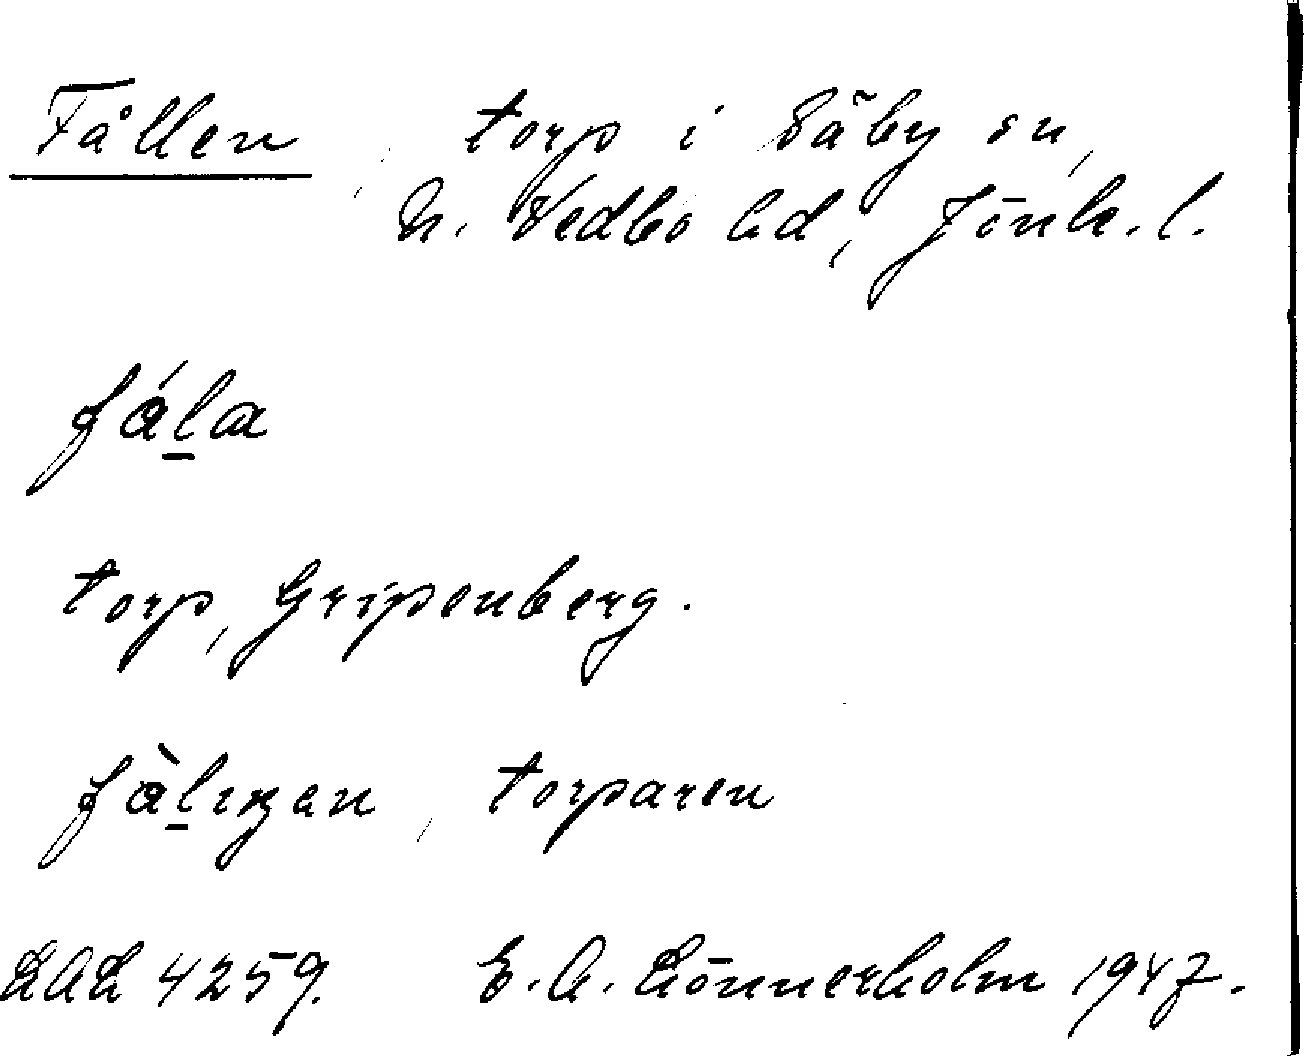 Fållen, torp i Säby sn,
N. Vedbo hd, Jönk. l.
fål̲a
torp, Gripenberg.
fål̲ıŋan, torparen
LAL 4259. E. A. Lönnerholm 1947.